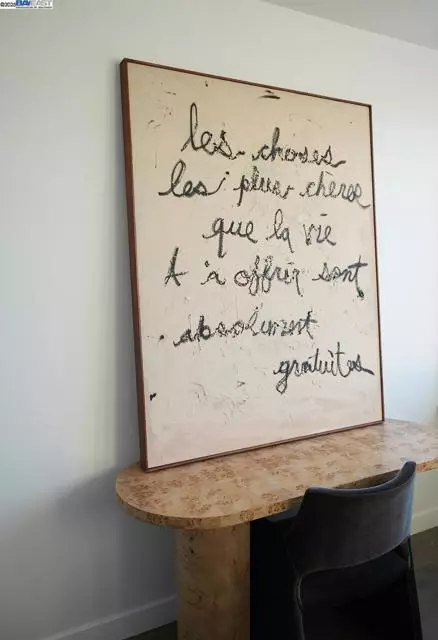 ©2025 BAREAST
les choses
les plus chères
que la vie
t'a offrir sont
absolument
gratuites